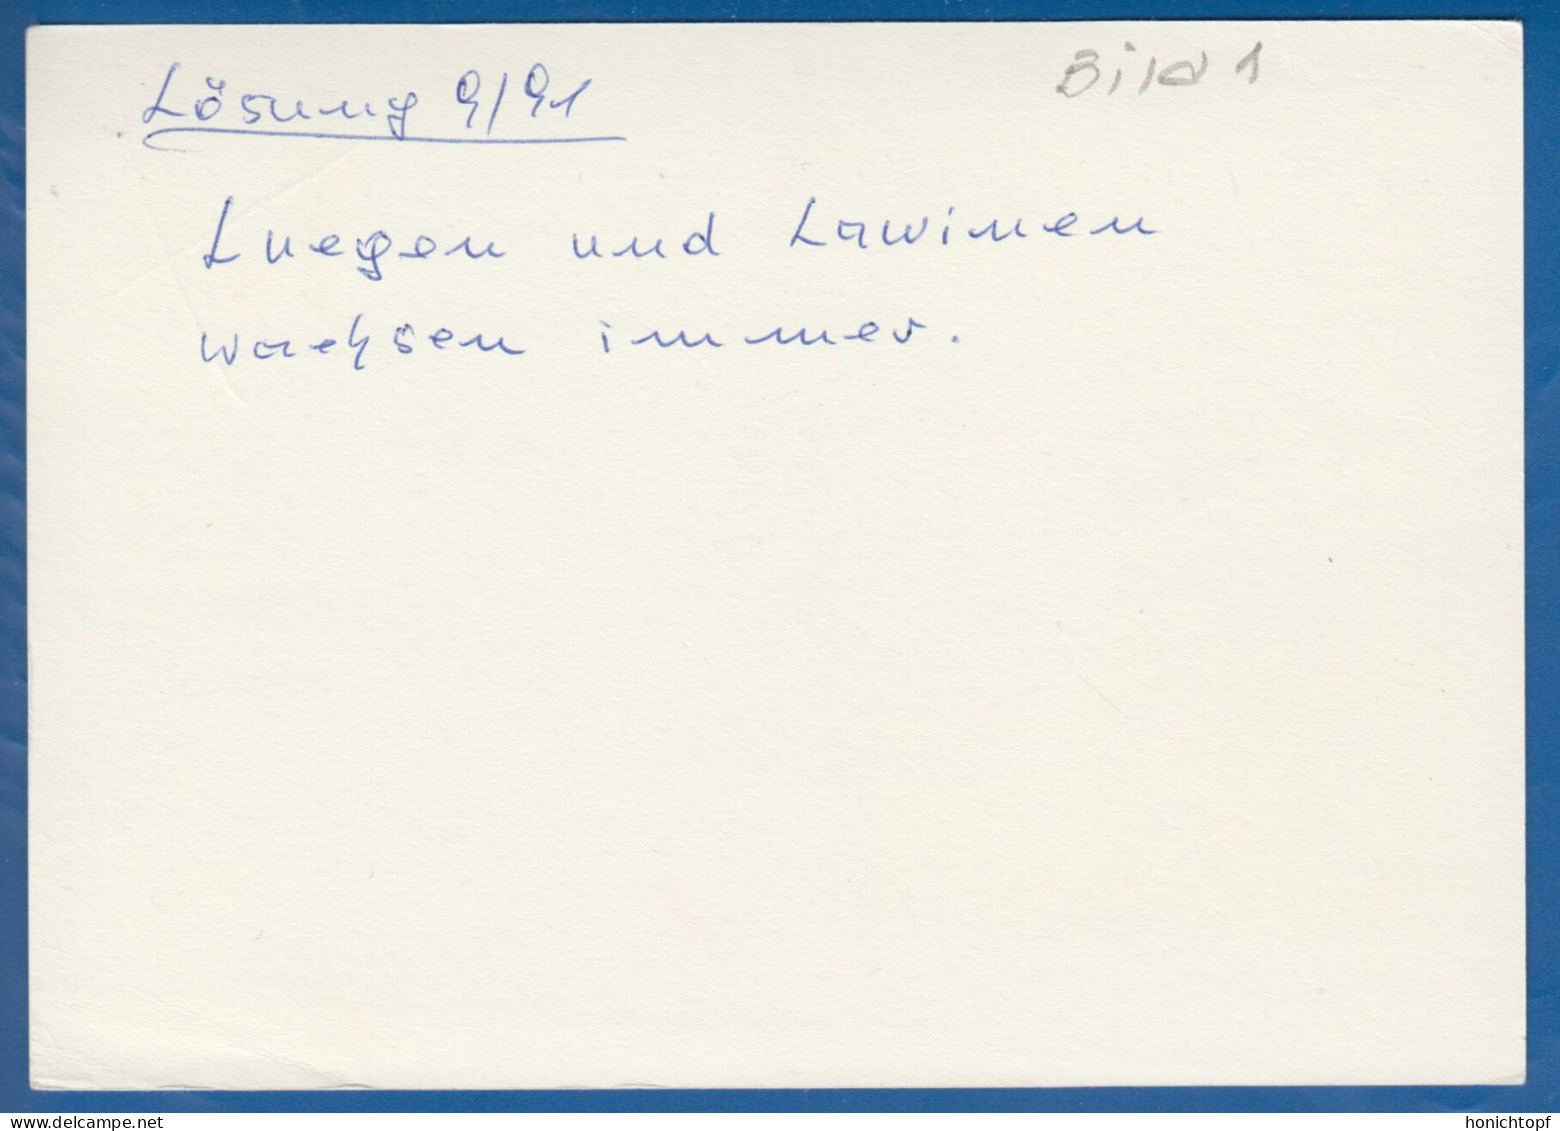 Lösung 9/91
Bild 1
Luegen und Lawinen
wachsen immer.
www.delcampe.net
honichtopf